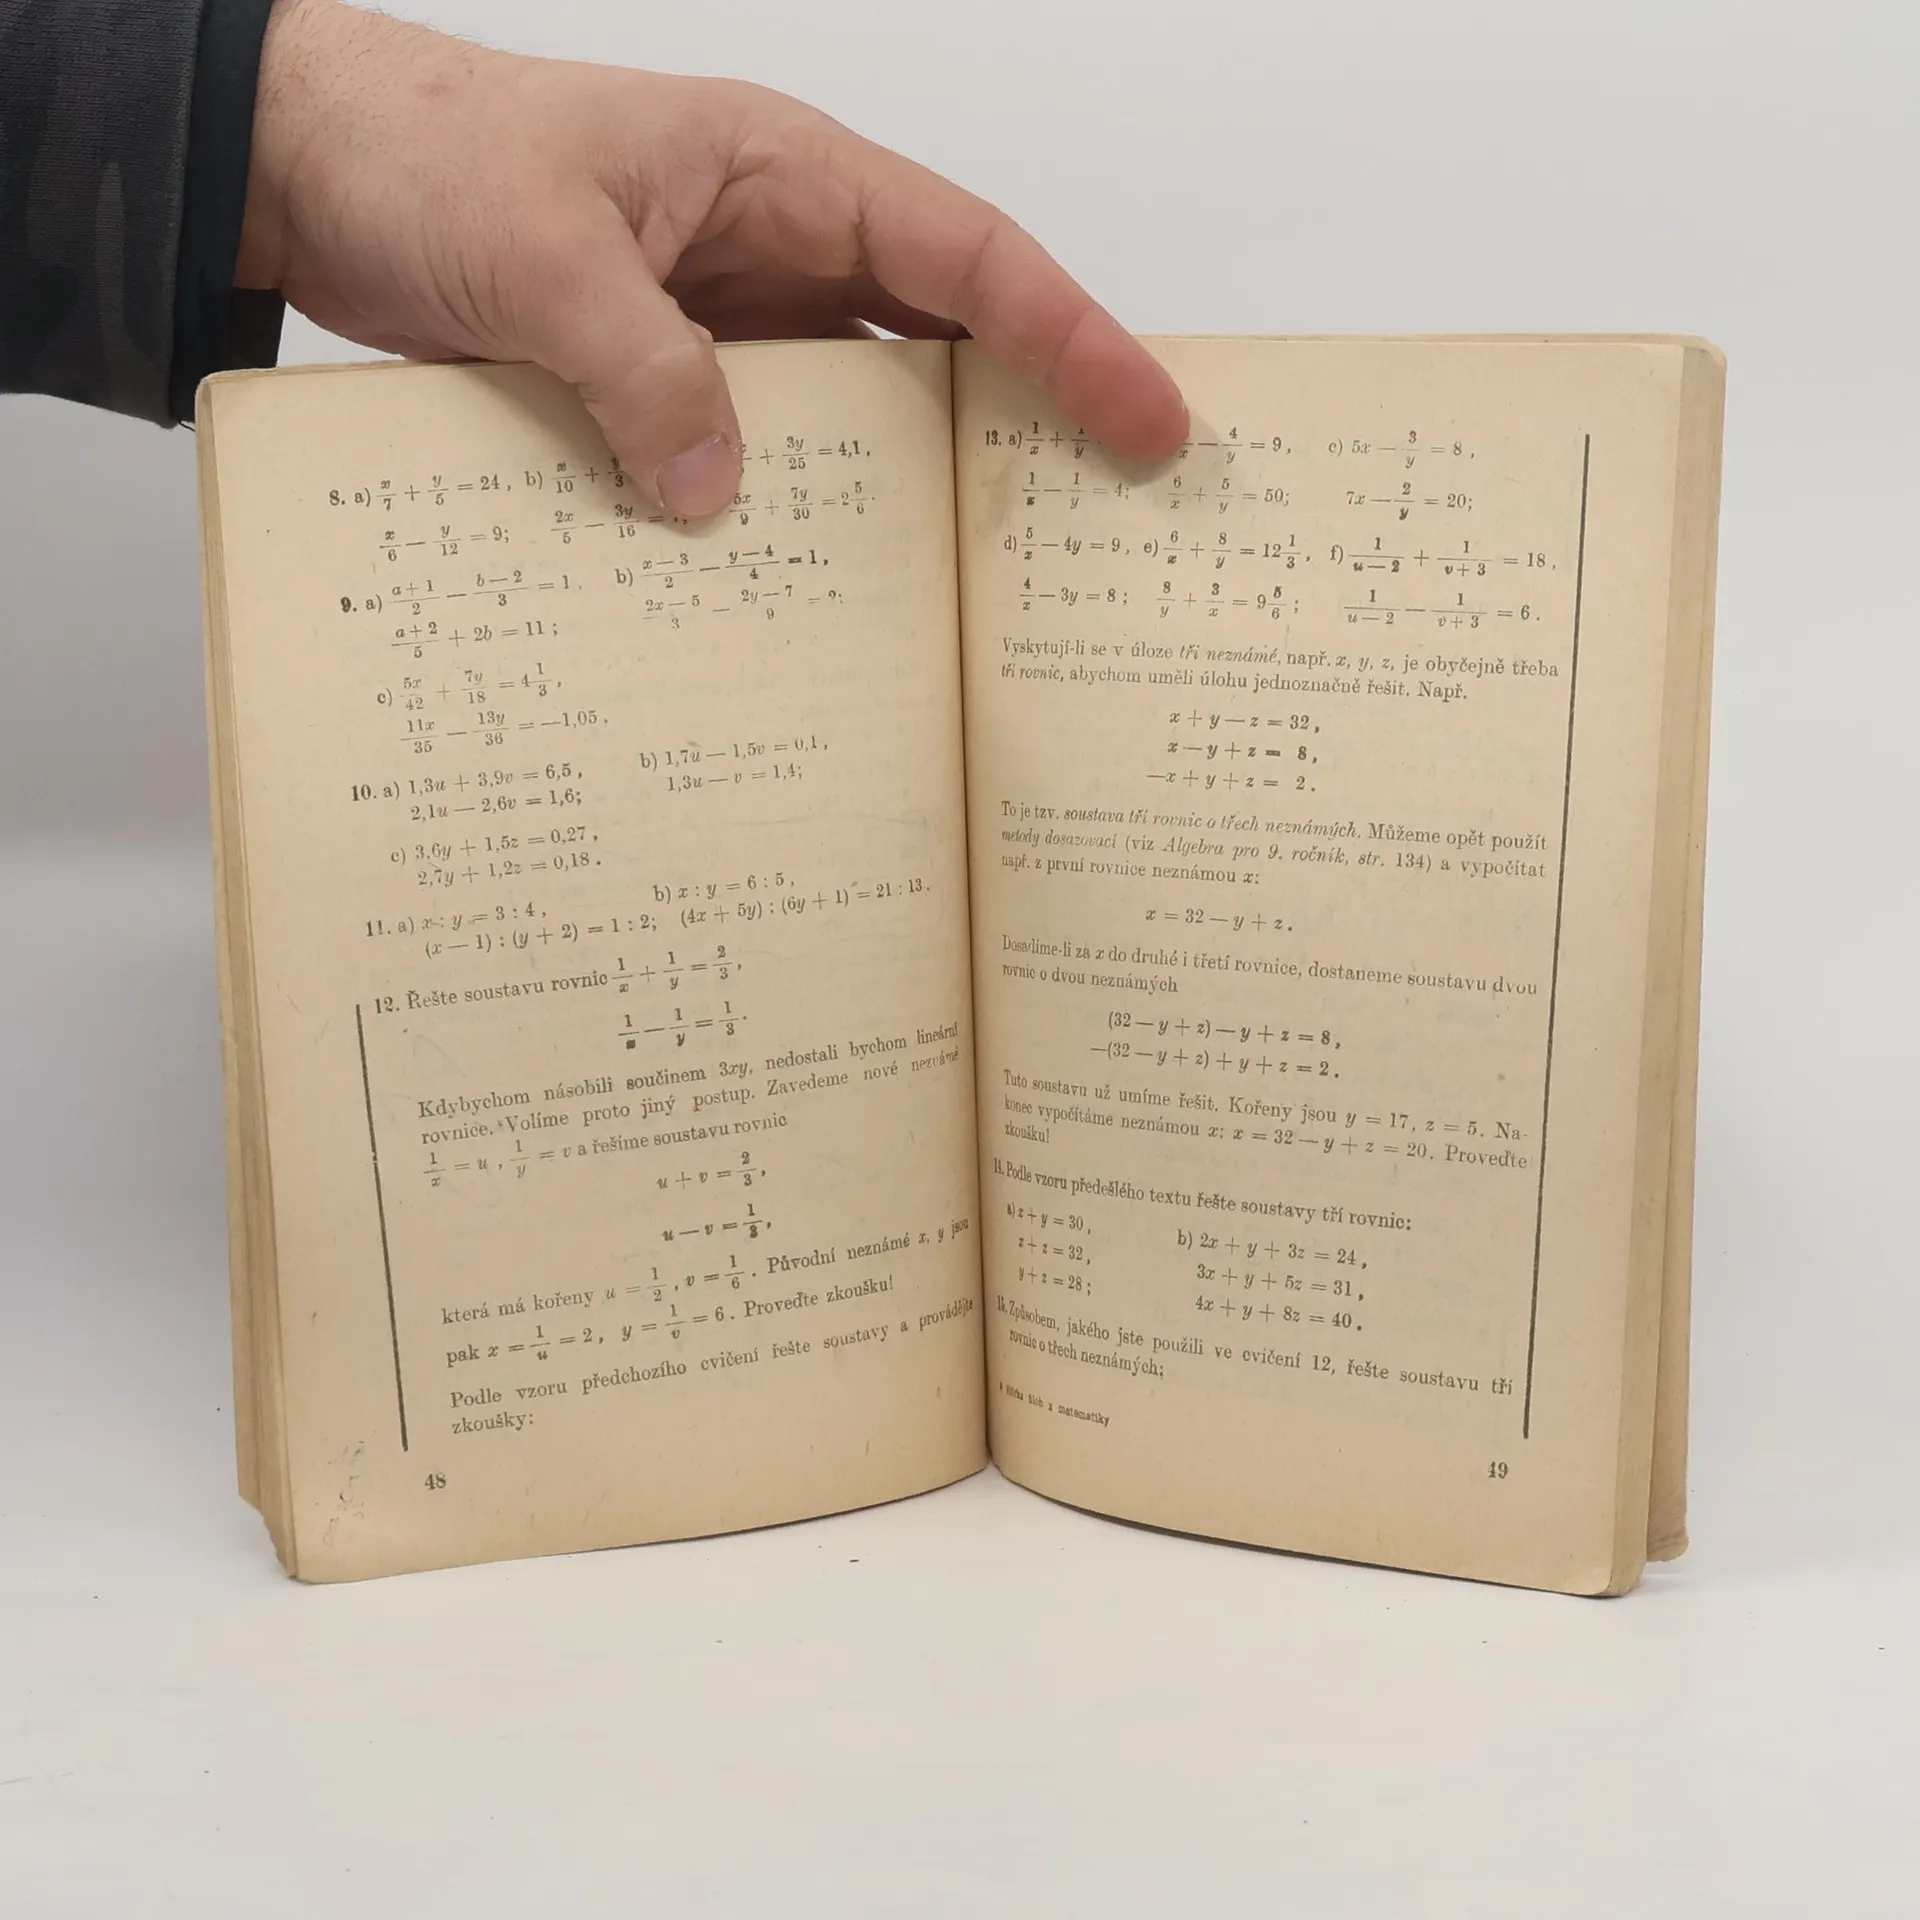 8. a) x/7 + y/5 = 24, b) x/10 + y/3 + 3y/25 = 4,1,
x/6 − y/12 = 9; 2x/5 − 3y/16 = 5x/9 + 7y/30 = 2 5/6.
9. a) (a + 1)/2 − (b − 2)/3 = 1, b) (x − 3)/2 − (y − 4)/4 = 1,
(a + 2)/5 + 2b = 11; (2x − 5)/3 − (2y − 7)/9 =
c) 5x/42 + 7y/18 = 4 1/3,
11x/35 − 13y/36 = −1,05.
10. a) 1,3u + 3,9v = 6,5, b) 1,7u − 1,5v = 0,1,
2,1u − 2,6v = 1,6; 1,3u − v = 1,4;
c) 3,6y + 1,5z = 0,27,
2,7y + 1,2z = 0,18.
11. a) x : y = 3 : 4, b) x : y = 6 : 5,
(x − 1) : (y + 2) = 1 : 2; (4x + 5y) : (6y + 1) = 21 : 13.
12. Řešte soustavu rovnic 1/x + 1/y = 2/3,
1/x − 1/y = 1/3.
Kdybychom násobili součinem 3xy, nedostali bychom lineární
rovnice. Volíme proto jiný postup. Zavedeme nové neznámé
1/x = u, 1/y = v a řešíme soustavu rovnic
u + v = 2/3,
u − v = 1/3,
která má kořeny u = 1/2, v = 1/6. Původní neznámé x, y jsou
pak x = 1/u = 2, y = 1/v = 6. Proveďte zkoušku!
Podle vzoru předchozího cvičení řešte soustavy a provádějte
zkoušky:
48
13. a) 1/x + 1/y /x − 4/y = 9, c) 5x − 3/y = 8,
1/x − 1/y = 4; 6/x + 5/y = 50; 7x − 2/y = 20;
d) 5/x − 4y = 9, e) 6/x + 8/y = 12 1/3, f) 1/(u − 2) + 1/(v + 3) = 18,
4/x − 3y = 8; 8/y + 3/x = 9 5/6; 1/(u − 2) − 1/(v + 3) = 6.
Vyskytují-li se v úloze tři neznámé, např. x, y, z, je obyčejně třeba
tří rovnic, abychom uměli úlohu jednoznačně řešit. Např.
x + y − z = 32,
x − y + z = 8,
−x + y + z = 2.
To je tzv. soustava tří rovnic o třech neznámých. Můžeme opět použít
metody dosazovací (viz Algebra pro 9. ročník, str. 134) a vypočítat
např. z první rovnice neznámou x:
x = 32 − y + z.
Dosadíme-li za x do druhé i třetí rovnice, dostaneme soustavu dvou
rovnic o dvou neznámých
(32 − y + z) − y + z = 8,
−(32 − y + z) + y + z = 2.
Tuto soustavu už umíme řešit. Kořeny jsou y = 17, z = 5. Na-
konec vypočítáme neznámou x: x = 32 − y + z = 20. Proveďte
zkoušku!
14. Podle vzoru předešlého textu řešte soustavy tří rovnic:
a) x + y = 30, b) 2x + y + 3z = 24,
x + z = 32, 3x + y + 5z = 31,
y + z = 28; 4x + y + 8z = 40.
15. Způsobem, jakého jste použili ve cvičení 12, řešte soustavu tří
rovnic o třech neznámých:
Sbírka úloh z matematiky
49